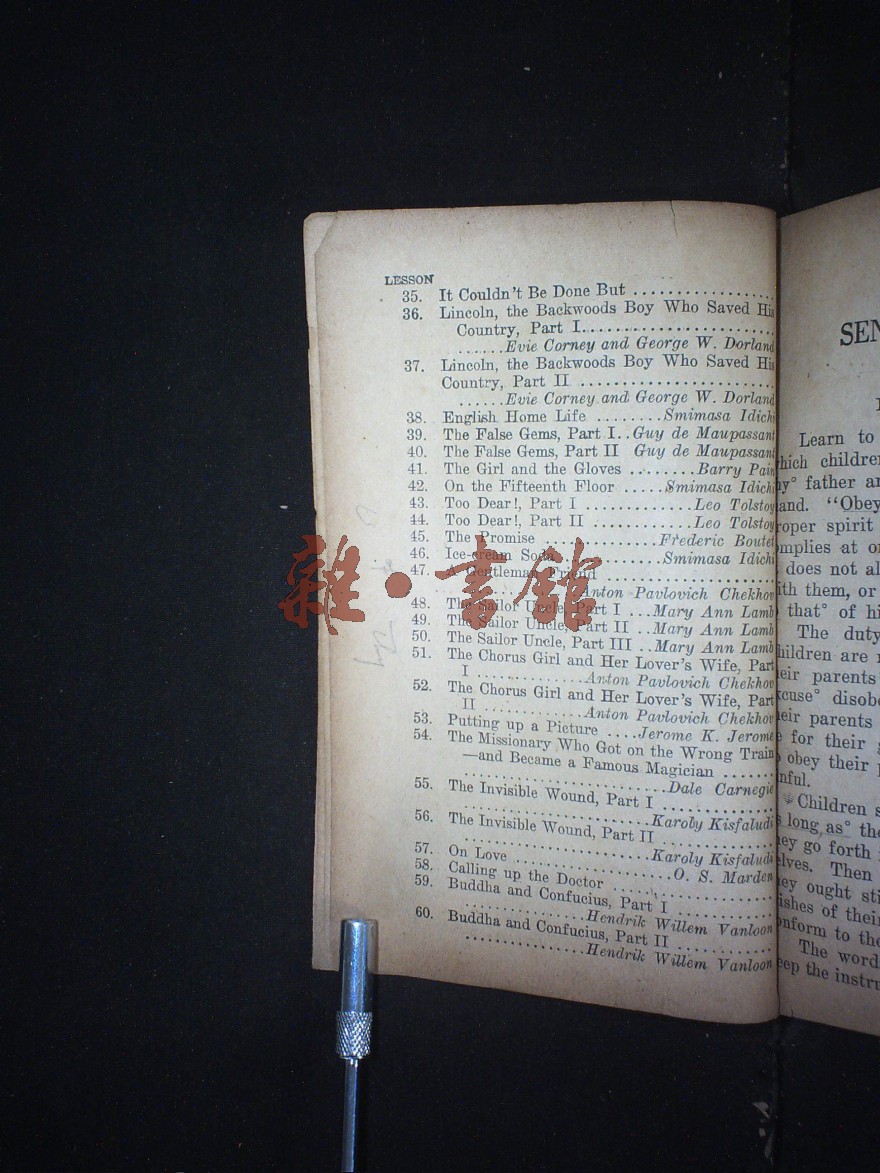 LESSON
35. It Couldn't Be Done But ..................
36. Lincoln, the Backwoods Boy Who Saved His
Country, Part I........................
......Evie Corney and George W. Dorland
37. Lincoln, the Backwoods Boy Who Saved His
Country, Part II ........................
......Evie Corney and George W. Dorland
38. English Home Life ........Smimasa Idichi
39. The False Gems, Part I..Guy de Maupassant
40. The False Gems, Part II Guy de Maupassant
41. The Girl and the Gloves ........Barry Pain
42. On the Fifteenth Floor .....Smimasa Idichi
43. Too Dear!, Part I .............Leo Tolstoy
44. Too Dear!, Part II ............Leo Tolstoy
45. The Promise ..............Frederic Boutet
46. Ice-cream Soda ............Smimasa Idichi
47. A Gentleman Friend ..................
..................Anton Pavlovich Chekhov
48. The Sailor Uncle, Part I ...Mary Ann Lamb
49. The Sailor Uncle, Part II ..Mary Ann Lamb
50. The Sailor Uncle, Part III ..Mary Ann Lamb
51. The Chorus Girl and Her Lover's Wife, Part
I .............Anton Pavlovich Chekhov
52. The Chorus Girl and Her Lover's Wife, Part
II .............Anton Pavlovich Chekhov
53. Putting up a Picture ....Jerome K. Jerome
54. The Missionary Who Got on the Wrong Train
—and Became a Famous Magician .......
..........................Dale Carnegie
55. The Invisible Wound, Part I ..............
........................Karoly Kisfaludi
56. The Invisible Wound, Part II ..............
........................Karoly Kisfaludi
57. On Love .....................O. S. Marden
58. Calling up the Doctor ....................
59. Buddha and Confucius, Part I .............
...............Hendrik Willem Vanloon
60. Buddha and Confucius, Part II ............
...............Hendrik Willem Vanloon
雜·書館
SEN
Learn to
hich children
y° father an
and. "Obey
roper spirit
mplies at on
does not al
ith them, or
that° of hi
The duty
hildren are
eir parents
cuse° disobe
eir parents
for their
obey their
nful.
Children s
long as° the
ey go forth
lves. Then
ey ought sti
ishes of their
nform to the
The word
eep the instru